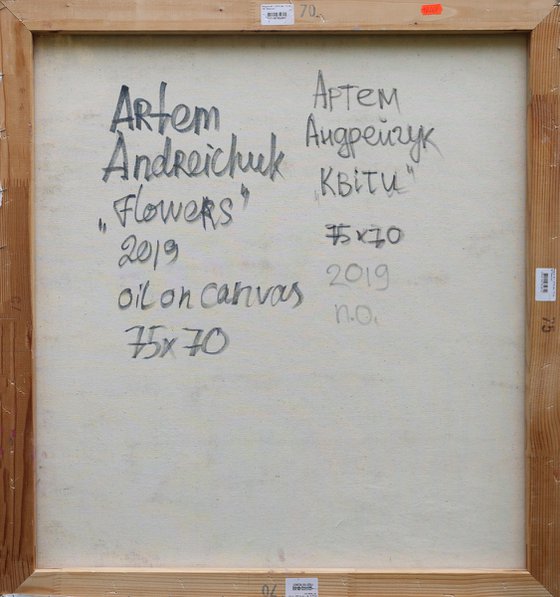 Artem
Andreichuk
„Flowers"
2019
oil on canvas
75x70
Артем
Андрейчук
„Квіти"
75x70
2019
п.о.
70
75
70